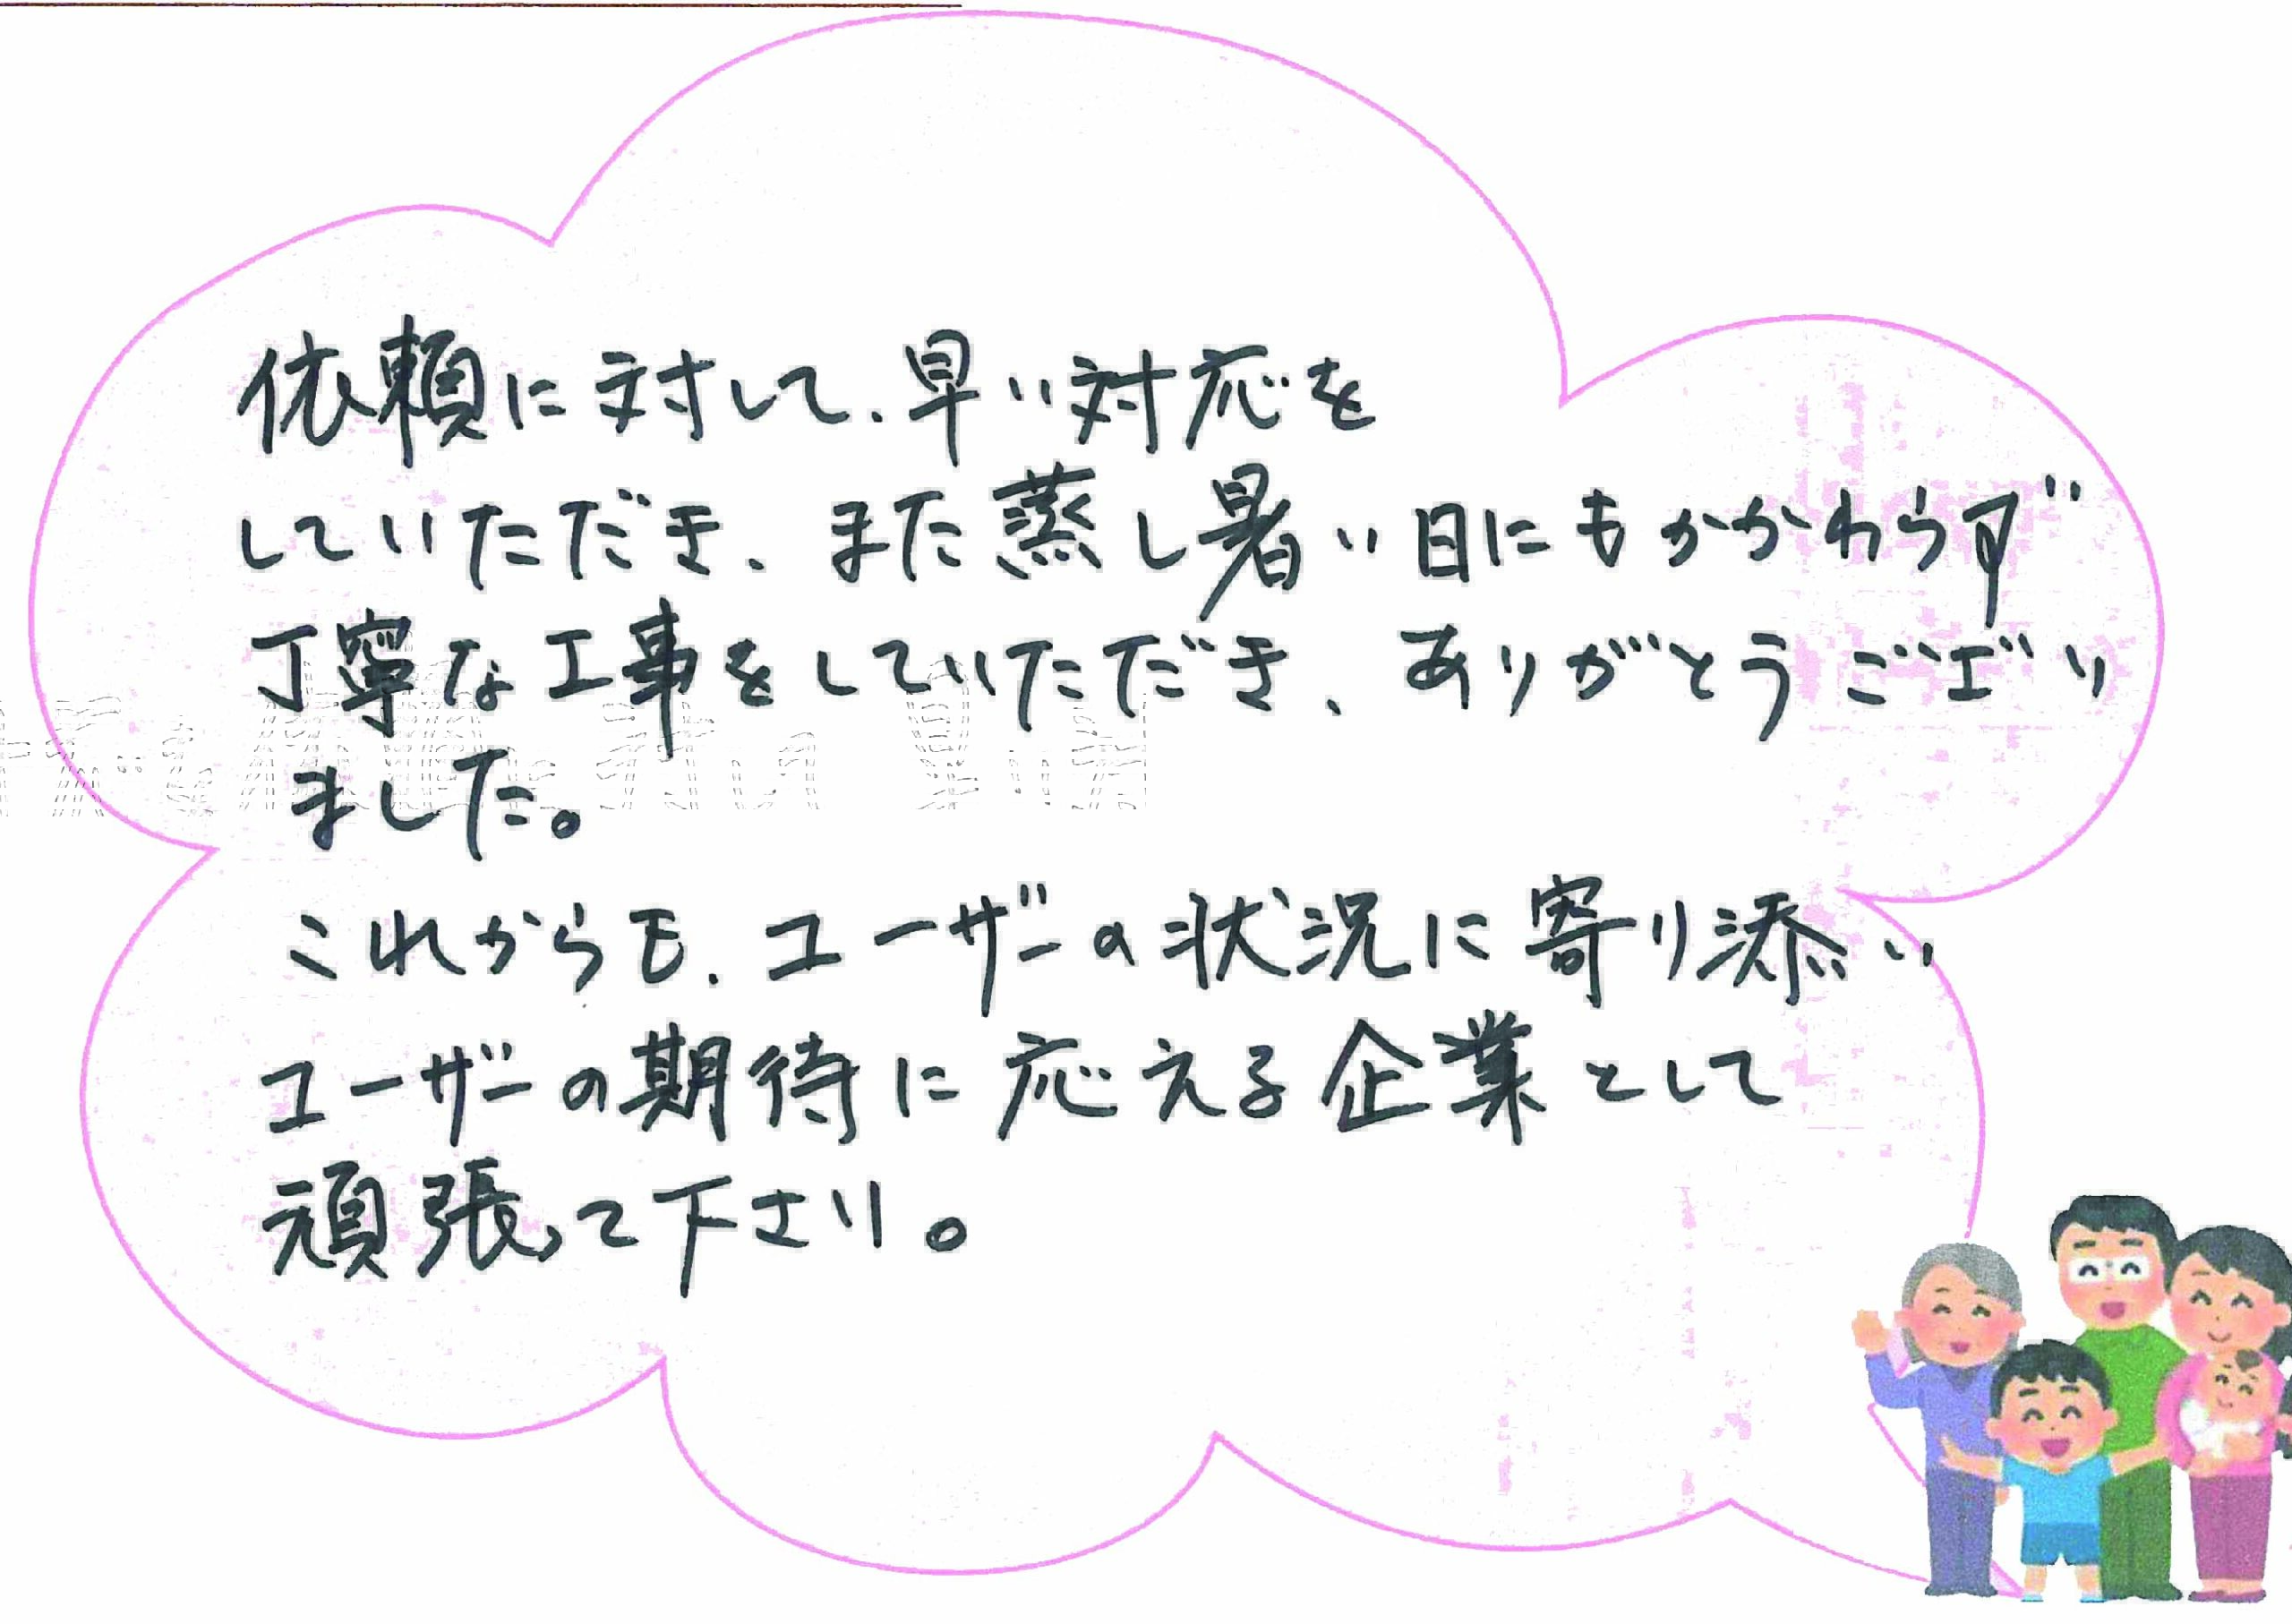 依頼に対して、早い対応を
していただき、また蒸し暑い日にもかかわらず
丁寧な工事をしていただき、ありがとうござい
ました。
これからも、ユーザーの状況に寄り添い
ユーザーの期待に応える企業として
頑張って下さい。